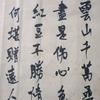 雲山千萬
盡是傷心
紅豆不勝
何堪贈遠人